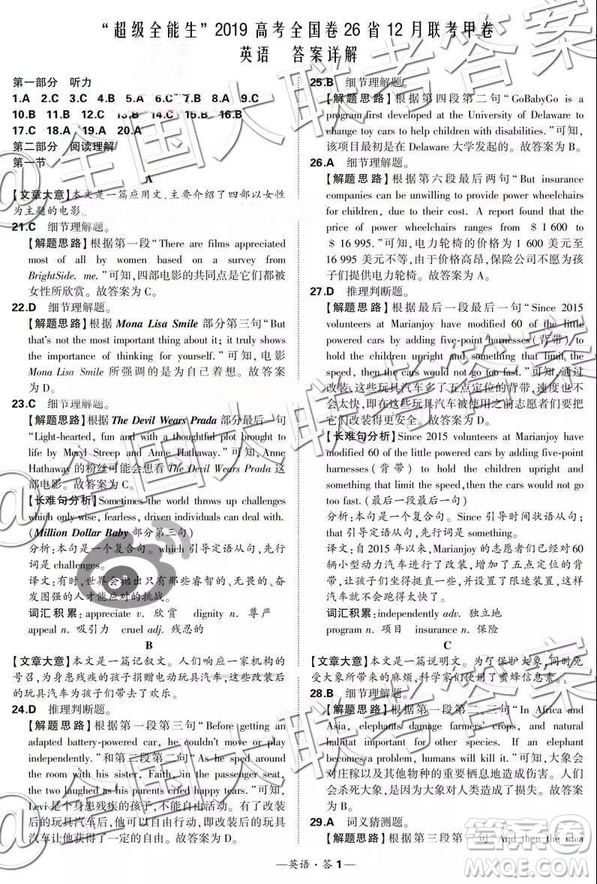 “超级全能生”2019高考全国卷26省12月联考甲卷
英语 答案详解
第一部分 听力
1.A 2.C 3.C 4.B 5.A 6.C 7.C 8.A 9.B
10.B 11.B 12.B 13.A 14.C 15.B 16.B
17.C 18.A 19.A 20.A
第二部分 阅读理解
第一节
A
【文章大意】本文是一篇应用文。主要介绍了四部以女性
为主题的电影。
21.C 细节理解题。
【解题思路】根据第一段“There are films appreciated
most of all by women based on a survey from
BrightSide. me.”可知，四部电影的共同点是它们都被
女性所欣赏。故答案为C。
22.D 细节理解题。
【解题思路】根据 Mona Lisa Smile 部分第三句“But
that's not the most important thing about it; it truly shows
the importance of thinking for yourself.”可知，电影
Mona Lisa Smile 所强调的是为自己着想。故答案
为D。
23.C 细节理解题。
【解题思路】根据 The Devil Wears Prada 部分最后一句
“Light-hearted, fun and with a thoughtful plot brought to
life by Meryl Streep and Anne Hathaway.”可知，Anne
Hathaway 的粉丝可能会想看 The Devil Wears Prada 这
部电影。故答案为C。
【长难句分析】Sometimes the world throws up challenges
which only wise, fearless, driven individuals can deal with.
(Million Dollar Baby 部分第三句)
分析：本句是一个复合句。which 引导定语从句，先行
词是 challenges。
译文：有时，世界会抛出只有那些有智慧的、无畏的、
发愤图强的人才能应对的挑战。
词汇积累：appreciate v. 欣赏 dignity n. 尊严
appeal n. 吸引力 cruel adj. 残忍的
B
【文章大意】本文是一篇记叙文。人们响应一家机构的
号召，为身患残疾的孩子改装玩具汽车，这些改装后
的玩具汽车为孩子们带去了欢乐。
24.D 推理判断题。
【解题思路】根据第一段第三句“Before getting the
altered battery-powered car, he wasn't able to move or play
independently.”和第二段第二句“As he sped
around the room with his sister, Faith, in the passenger seat,
the two laughed as his parents cried happy tears.”可知，
Levi是个身患残疾的孩子，不能自由活动，但在有了改装
后的玩具汽车后他能自由活动了。故答案为D。
25.B 细节理解题。
【解题思路】根据第四段第二句“GoBabyGo is a
program first developed at the University of Delaware to
change toy cars to help children with disabilities.”可知，
该项目最初是在 Delaware 大学发起的。故答案为B。
26.A 细节理解题。
【解题思路】根据第六段最后两句“But insurance
companies can be unwilling to provide power wheelchairs
for children, due to their cost. A study found that the
price of power wheelchairs range from $ 1 600 to
$ 16 995.”可知，电力轮椅的价格为1 600美元至
16 995美元。由于价格昂贵，保险公司不愿为孩子
们提供电力轮椅。故答案为A。
27.D 推理判断题。
【解题思路】根据最后一段最后一句“Since 2015
volunteers at Marianjoy have modified 60 of the little
powered cars by adding five-point harnesses（背带）to
hold the children upright and adding something that limit the
speed, then the cars would not go too fast.”可知，通过
改装，这些玩具汽车多了五点定位的背带，速度也
不会太快，即在这些玩具汽车被改装之前志愿者们要
考虑孩子们的安全。故答案为D。
【长难句分析】Since 2015 volunteers at Marianjoy have
modified 60 of the little powered cars by adding five-point
harnesses（背带）to hold the children upright and adding
something that limit the speed, then the cars would not go
too fast.（最后一段最后一句）
分析：本句是一个复合句。Since 引导时间状语从句；
that 引导定语从句，先行词是 something。
译文：自2015年以来，Marianjoy的志愿者们已经改装了60
辆小型动力汽车进行了改装，增加了五点定位的背带，
让孩子们坐起来时挺直，并且增加了一些限制速度的东
西，这样汽车就不会开得太快。
词汇积累：independently adv. 独立地
program n. 项目 insurance n. 保险
C
【文章大意】本文是一篇说明文。为了保护大象，防止大
象给人类带来的麻烦，科学家们利用了蜜蜂信息素。
28.B 细节理解题。
【解题思路】根据第一段第二、三句“In Africa and
Asia, elephants damage farmers' crops, and natural
areas, and elephants may kill people. If an elephant
becomes a problem, humans will kill it.”可知，大象会
对庄稼以及自然区造成危害，也可能会杀死人。人
们会杀死大象。故答案为B。
29.A 词义猜测题。
【解题思路】根据第二段第一句“Researchers have
—英语·答1—
@全国大联考答案
答案圈
MXQE.COM